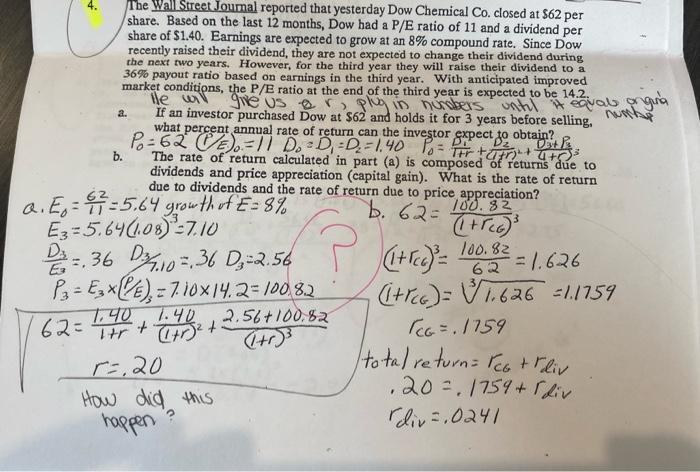 4. The Wall Street Journal reported that yesterday Dow Chemical Co. closed at $62 per
share. Based on the last 12 months, Dow had a P/E ratio of 11 and a dividend per
share of $1.40. Earnings are expected to grow at an 8% compound rate. Since Dow
recently raised their dividend, they are not expected to change their dividend during
the next two years. However, for the third year they will raise their dividend to a
36% payout ratio based on earnings in the third year. With anticipated improved
market conditions, the P/E ratio at the end of the third year is expected to be 14.2.
He will give us r, plug in numbers until it equals original number
a. If an investor purchased Dow at $62 and holds it for 3 years before selling,
what percent annual rate of return can the investor expect to obtain?
P₀=62 (P/E)₀=11 D₀=D₁=D₂=1.40 P₀= D₁/1+r + D₂/(1+r)² + D₃+P₃/(1+r)³
b. The rate of return calculated in part (a) is composed of returns due to
dividends and price appreciation (capital gain). What is the rate of return
due to dividends and the rate of return due to price appreciation?
a. E₀= 62/11 =5.64 growth of E=8%
E₃=5.64(1.08)³=7.10
D₃/E₃=.36 D₃/7.10=.36 D₃=2.56
P₃=E₃x(P/E)₃=7.10x14.2=100.82
62= 1.40/1+r + 1.40/(1+r)² + 2.56+100.82/(1+r)³
r=.20
How did this
happen?
?
b. 62= 100.82/(1+rCG)³
(1+rCG)³= 100.82/62 =1.626
(1+rCG)= ³√1.626 =1.1759
rCG=.1759
total return= rCG+rdiv
.20=.1759+rdiv
rdiv=.0241